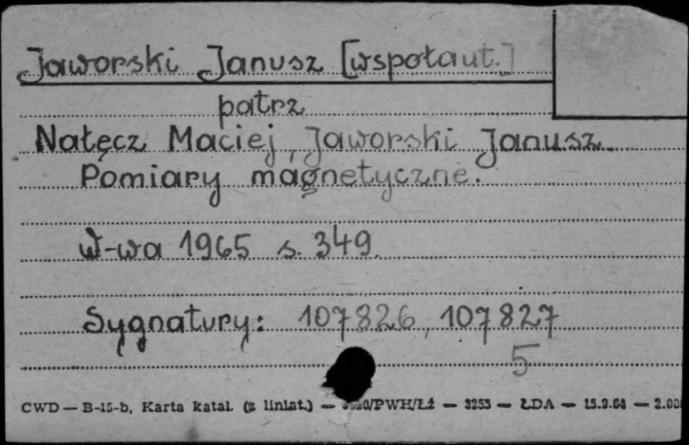 Jaworski Janusz [wspołaut.]
patrz
Nałęcz Maciej, Jaworski Janusz.
Pomiary magnetyczne.
W-wa 1965 s. 349.
Sygnatury: 107826, 107827
5
CWD — B-15-b, Karta katal. (z liniat.) — /PWH/Łż — 3253 — ŁDA — 15.9.64 —